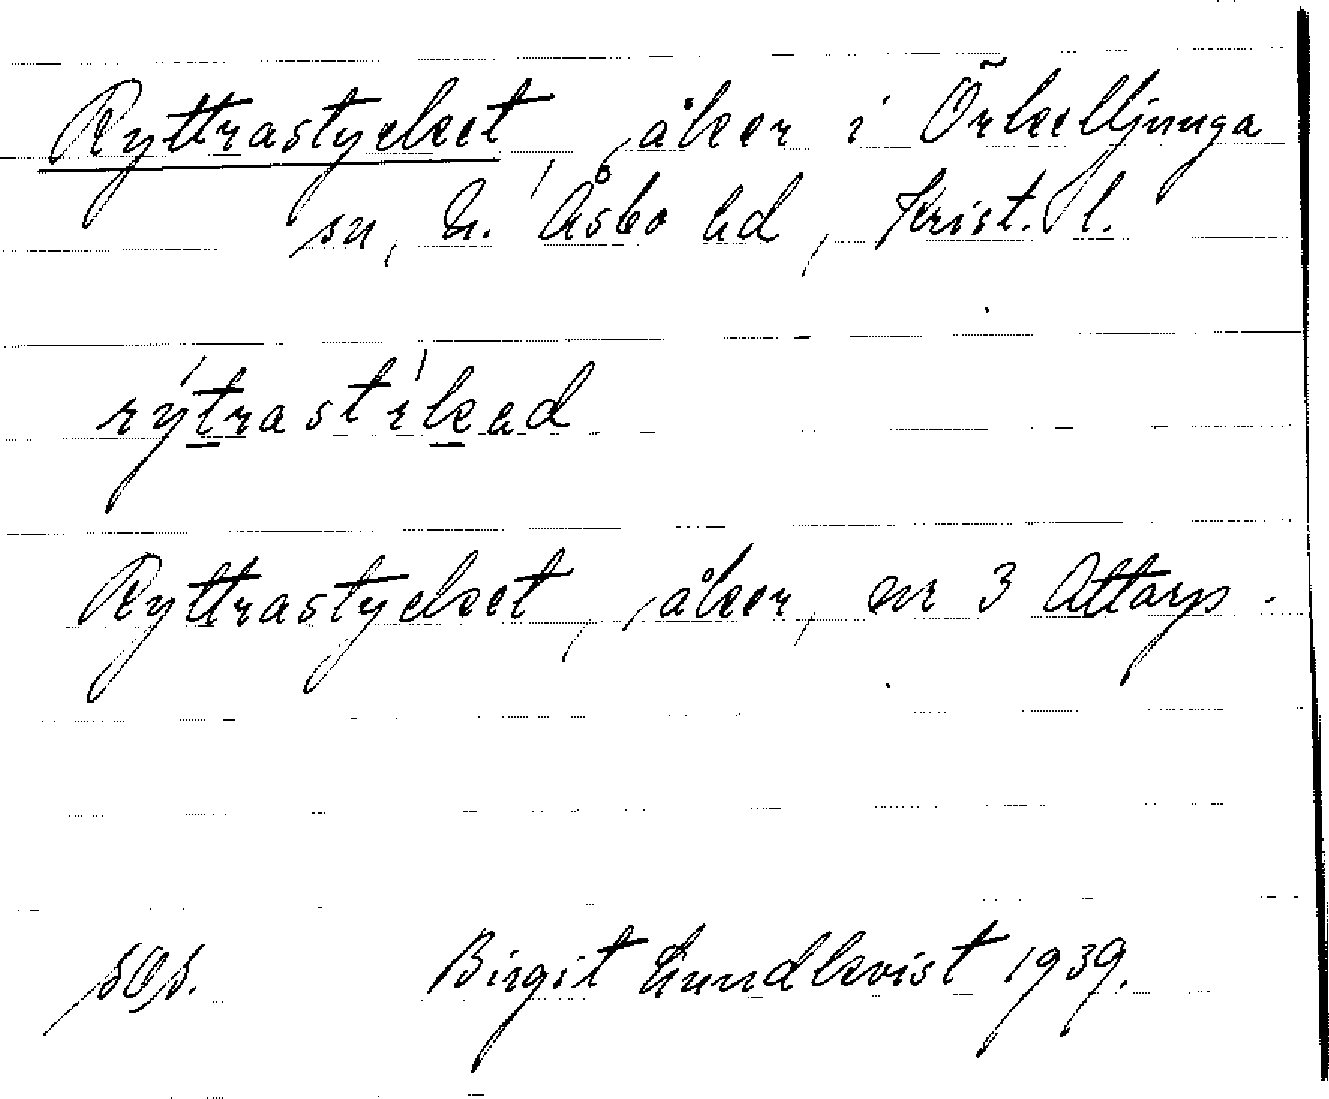 Ryttrastycket, åker i Örkelljunga
sn, N. Åsbo hd, Krist. l.
rýtrastíkad
Ryttrastycket, åker, nr 3 Attarp.
Birgit Lundkvist 1939.